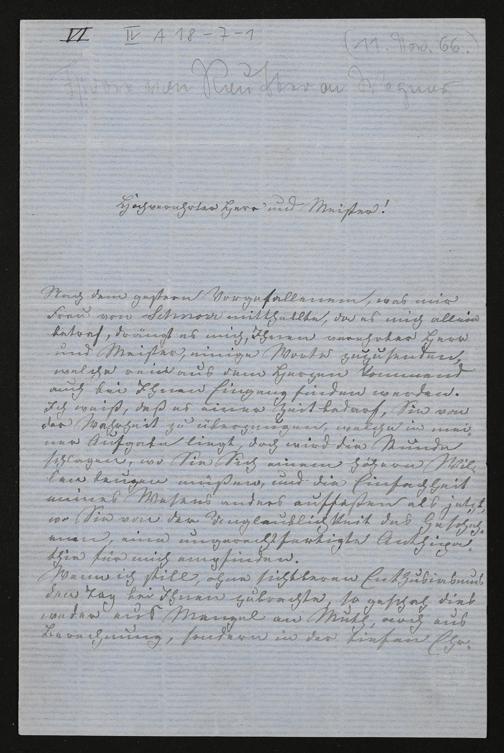 VI IV A 18-7-1 (11. Nov. 66.)
an Wagner
Hochverehrter Herr und Meister!
Nach dem gestern Vorgefallenem, was mir
Frau von Schnorr mittheilte, da es mich allein
betraf, drängt es mich, Ihnen verehrter Herr
und Meister, einige Worte zuzusenden,
welche rein aus dem Herzen kommend
auch bei Ihnen Eingang finden werden.
Ich weiß, daß es einer Zeit bedarf, Sie von
der Wahrheit zu überzeugen, welche in mei-
ner Aufgabe liegt, doch wird die Stunde
schlagen, wo Sie Sich einem höhern Wil-
len beugen müßen, und die Einfachheit
meines Wesens anders auffaßen als jetzt,
wo Sie von der Unglaublichkeit des Gescheh-
enen, eine ungerechtfertigte Anthipa-
thie für mich empfinden.
Wenn ich still, ohne sichtbaren Enthusiasmus
den Tag bei Ihnen zubrachte, so geschah dies
weder aus Mangel an Muth, noch aus
Berechnung, sondern in der tiefen Ehr-